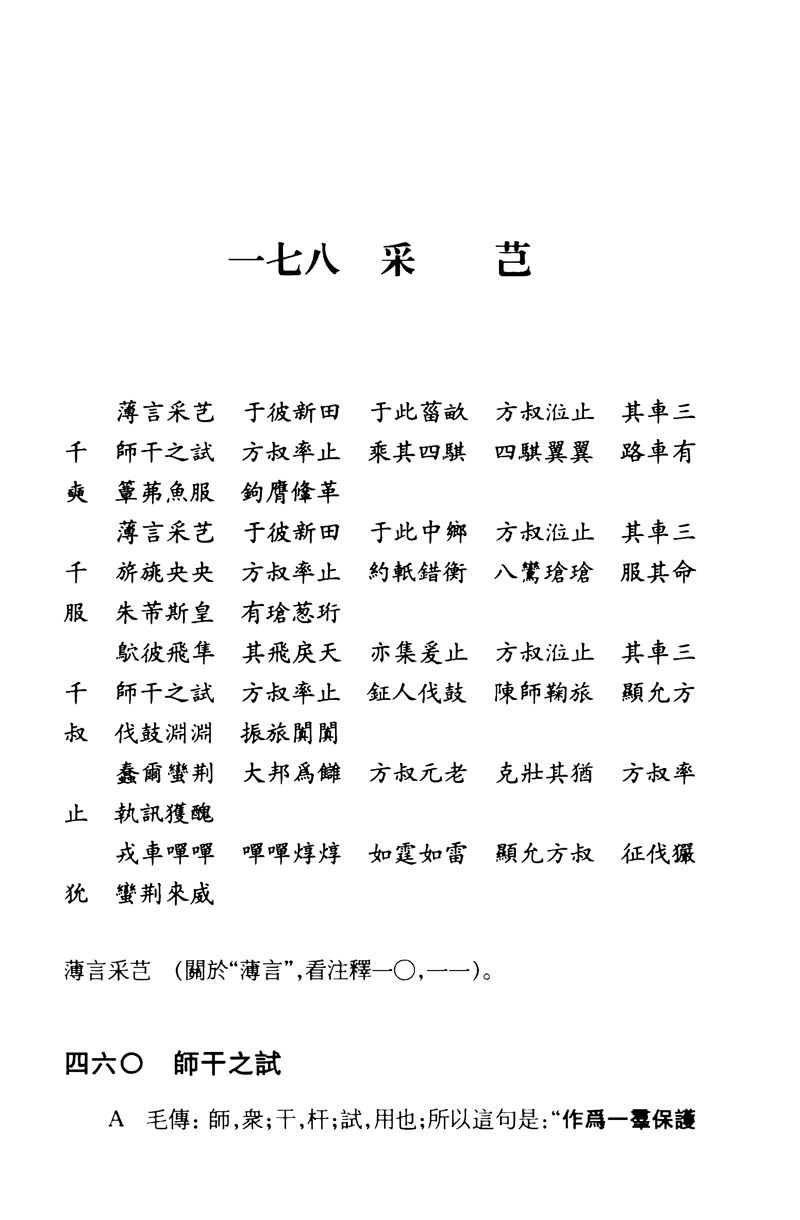 一七八　采　　芑
薄言采芑　于彼新田　于此菑畝　方叔涖止　其車三
千　師干之試　方叔率止　乘其四騏　四騏翼翼　路車有
奭　簟茀魚服　鉤膺鞗革
薄言采芑　于彼新田　于此中鄉　方叔涖止　其車三
千　旂旐央央　方叔率止　約軧錯衡　八鸞瑲瑲　服其命
服　朱芾斯皇　有瑲葱珩
鴥彼飛隼　其飛戾天　亦集爰止　方叔涖止　其車三
千　師干之試　方叔率止　鉦人伐鼓　陳師鞠旅　顯允方
叔　伐鼓淵淵　振旅闐闐
蠢爾蠻荆　大邦爲讎　方叔元老　克壯其猶　方叔率
止　執訊獲醜
戎車嘽嘽　嘽嘽焞焞　如霆如雷　顯允方叔　征伐玁
狁　蠻荆來威
薄言采芑　（關於“薄言”，看注釋一〇，一一）。
四六〇　師干之試
A　毛傳：師，衆；干，杆；試，用也；所以這句是：“作爲一羣保護